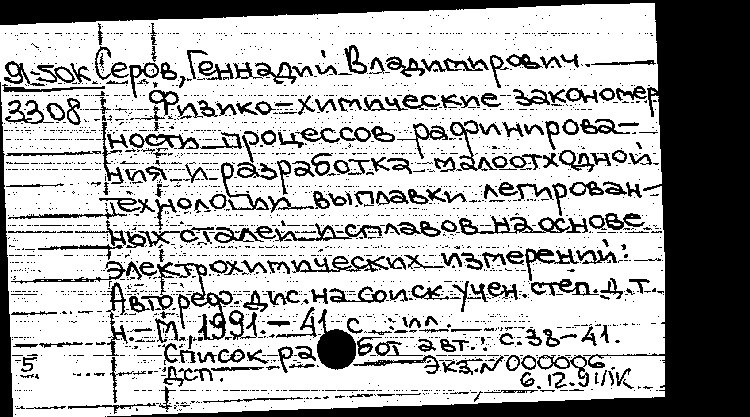 91-50К Серов, Геннадий Владимирович.
3308 Физико-химические закономер
ности процессов рафинирова-
ния и разработка малоотходной
технологии выплавки легирован-
ных сталей и сплавов на основе
электрохимических измерений:
Автореф. дис. на соиск. учен. степ. д.т.
н. - М., 1991. - 41 с. : ил.
Список работ авт.: с. 38-41.
5 ДСП. Экз. N 000006
6.12.91